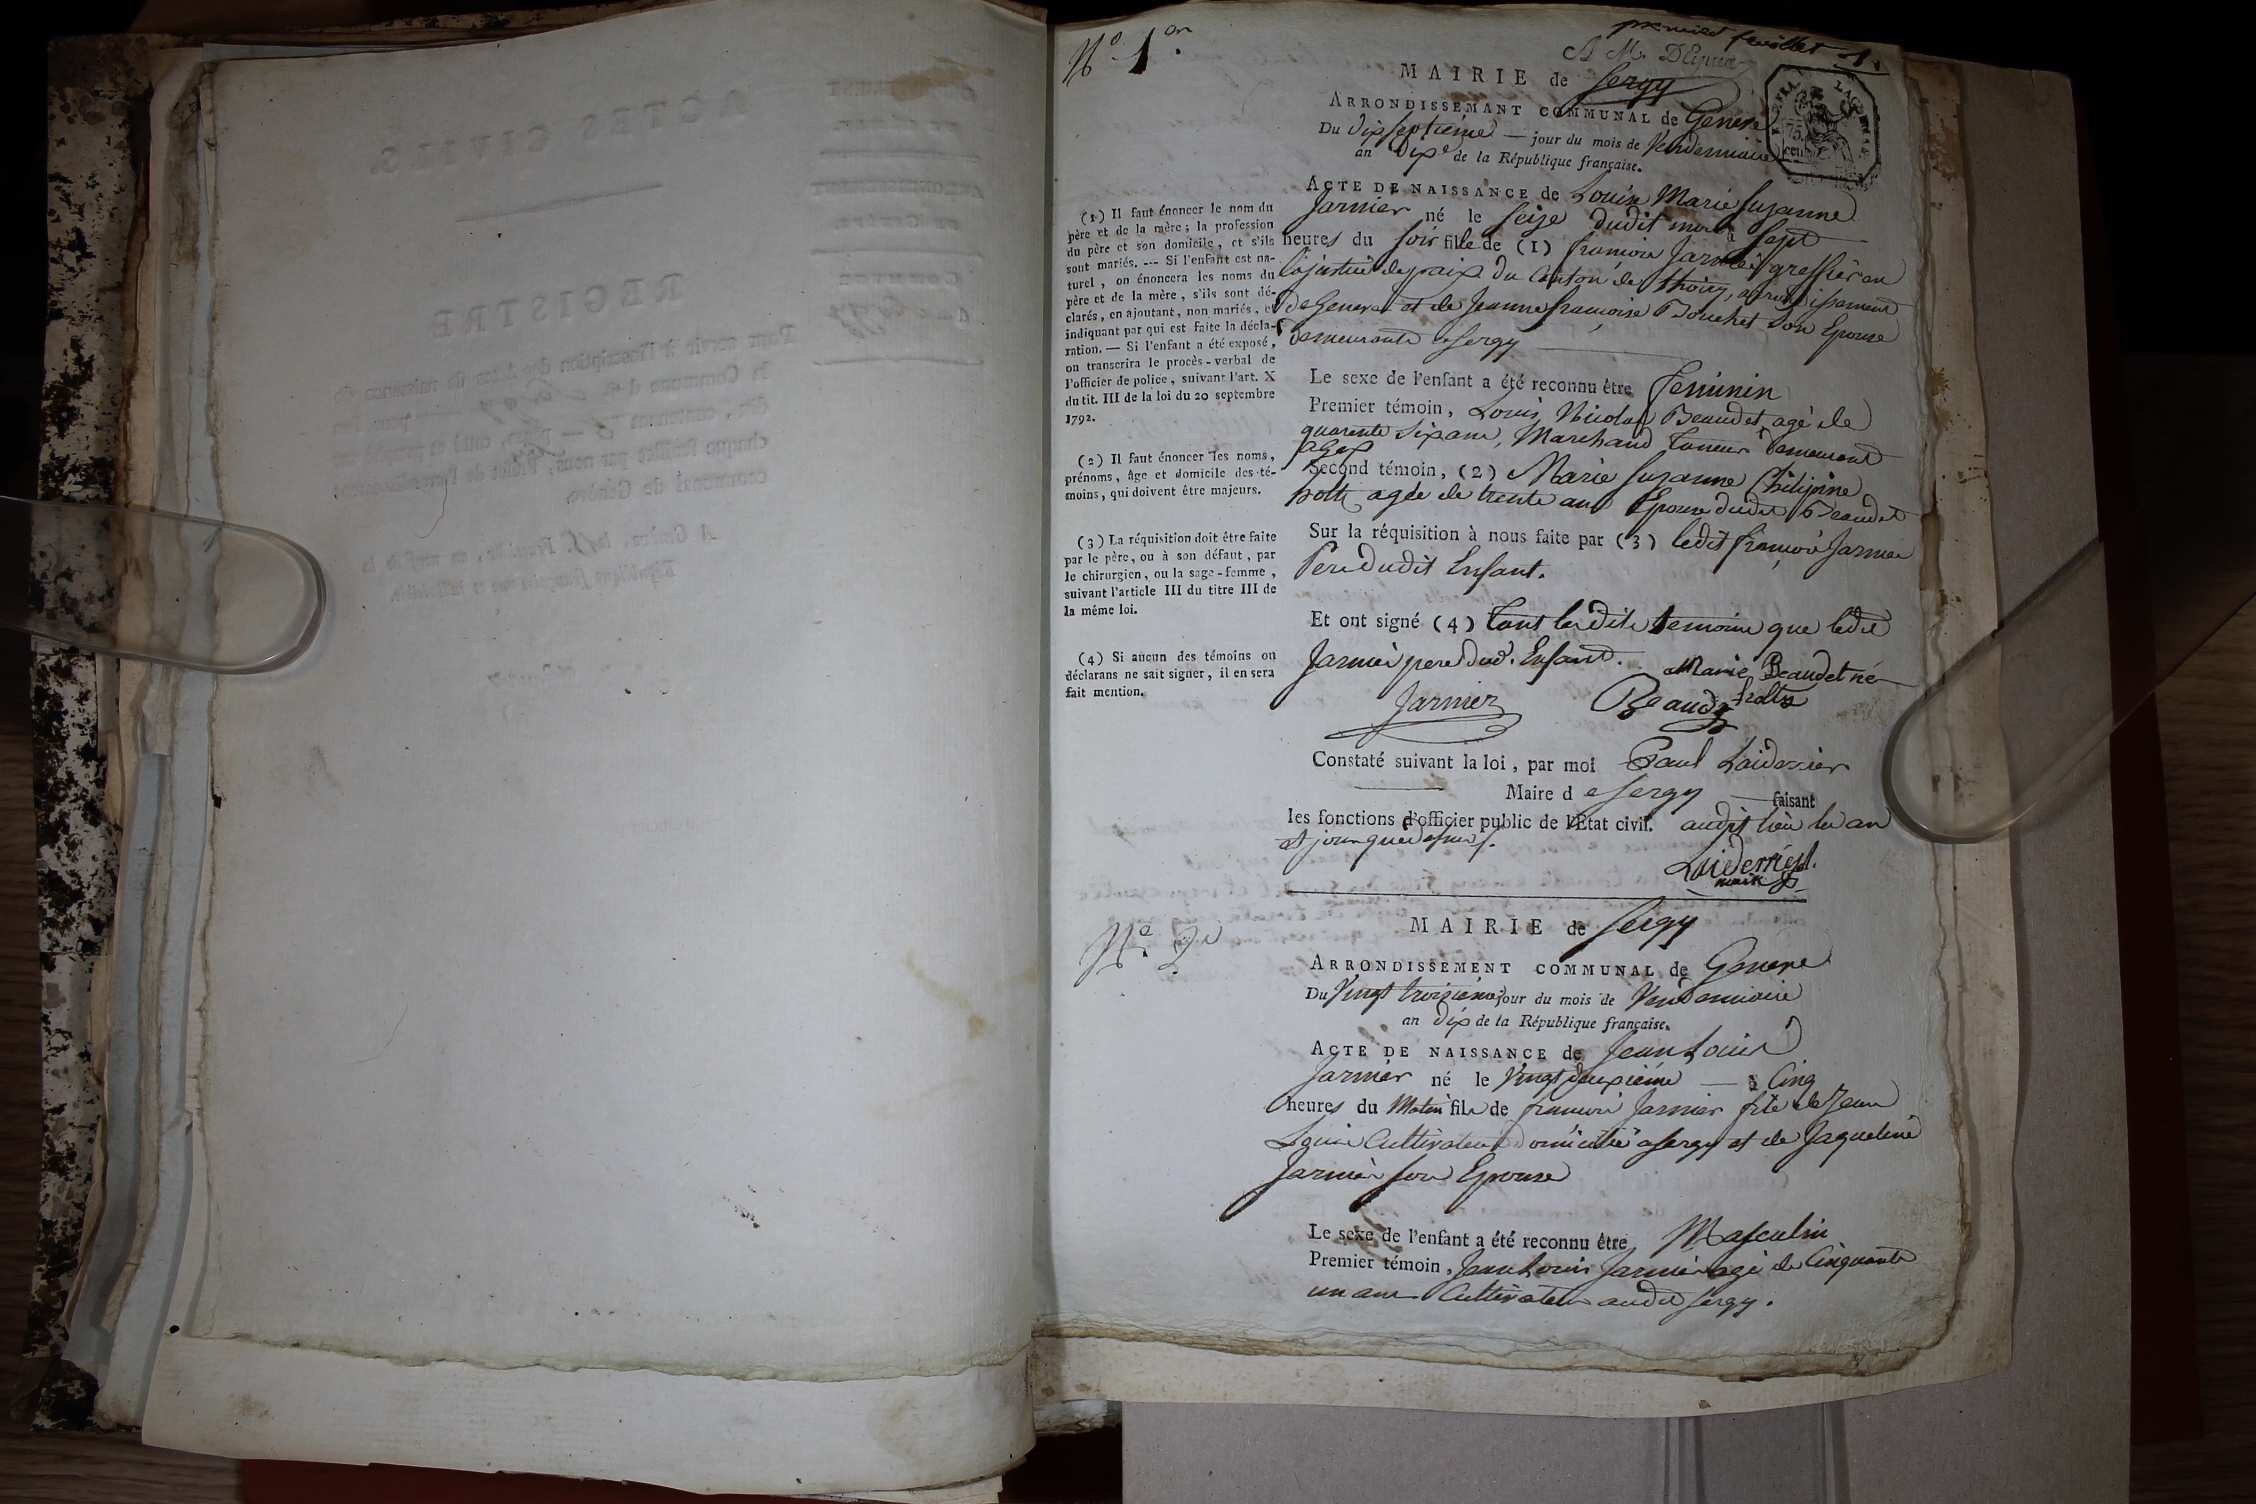 premier feuillet 1.
N.º 1.er
MAIRIE de Sergy
ARRONDISSEMANT COMMUNAL de Geneve
Du dix septieme — jour du mois de Vendemiaire
an dixe de la République française.
ACTE DE NAISSANCE de Louise Marie Suzanne
Jarnier né le seize dudit mois à sept
heures du soir fille de (1) francois Jarnier greffier en
la justice de paix du Canton de thoiry, arrondissement
de Geneve et de Jeanne francoise Bouchet son Epouse
demeurants a Sergy
Le sexe de l'enfant a été reconnu être feminin
Premier témoin, Louis Nicolas Beaudet, agé de
quarente six ans, Marchand tanneur demeurant
a Gex
Second témoin, (2) Marie Suzanne Philipine
holtz agée de trente ans Epouse dudit Beaudet
Sur la réquisition à nous faite par (3) ledit françois Jarnier
Pere dudit Enfant.
Et ont signé (4) tant lesdits temoins que ledit
Jarnier pere dud. Enfant.
Marie Beaudet né
holtz
Jarnier Beaudet
Constaté suivant la loi, par moi Paul Laiderrier
Maire d e Sergy faisant
les fonctions d'officier public de l'Etat civil. audit lieu les an
et jour que dessus.
Laiderrier
maire
(1) Il faut énoncer le nom du
père et de la mère; la profession
du père et son domicile, et s'ils
sont mariés. --- Si l'enfant est na-
turel, on énoncera les noms du
père et de la mère, s'ils sont dé-
clarés, en ajoutant, non mariés, et
indiquant par qui est faite la décla-
ration. — Si l'enfant a été exposé,
on transcrira le procès-verbal de
l'officier de police, suivant l'art. X
du tit. III de la loi du 20 septembre
1792.
(2) Il faut énoncer les noms,
prénoms, âge et domicile des té-
moins, qui doivent être majeurs.
(3) La réquisition doit être faite
par le père, ou à son défaut, par
le chirurgien, ou la sage-femme,
suivant l'article III du titre III de
la même loi.
(4) Si aucun des témoins ou
déclarans ne sait signer, il en sera
fait mention.
N.º 2.e
MAIRIE de Sergy
ARRONDISSEMENT COMMUNAL de Geneve
Du Vingt troisieme jour du mois de Vendemiaire
an dix de la République française.
ACTE DE NAISSANCE de Jean Louis
Jarnier né le Vingt deuxieme — à Cinq
heures du Matin fils de francois Jarnier fils de Jean
Louis Cultivateur domicilié a Sergy et de Jaqueline
Jarnier son Epouse
Le sexe de l'enfant a été reconnu être Masculin
Premier témoin, Jean Louis Jarnier agé de Cinquante
un ans Cultivateur audit Sergy.